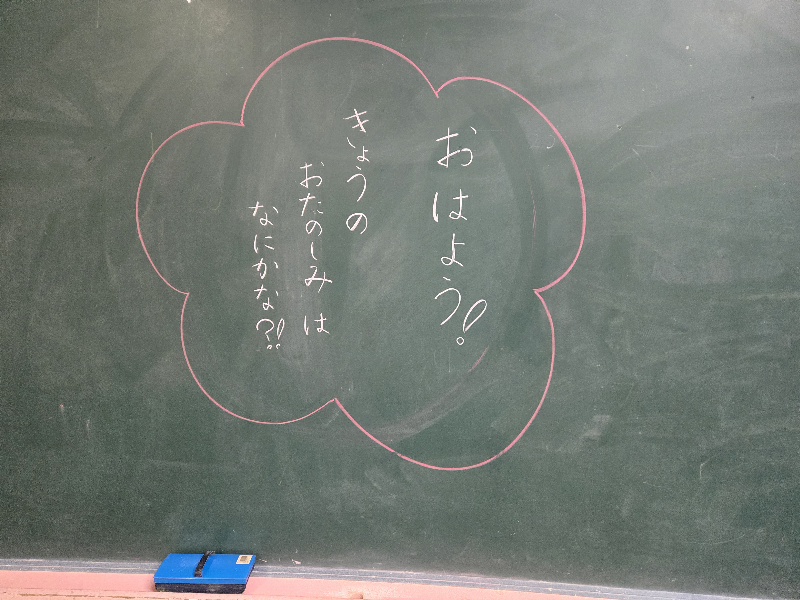 おはよう!
きょうの
おたのしみは
なにかな?!